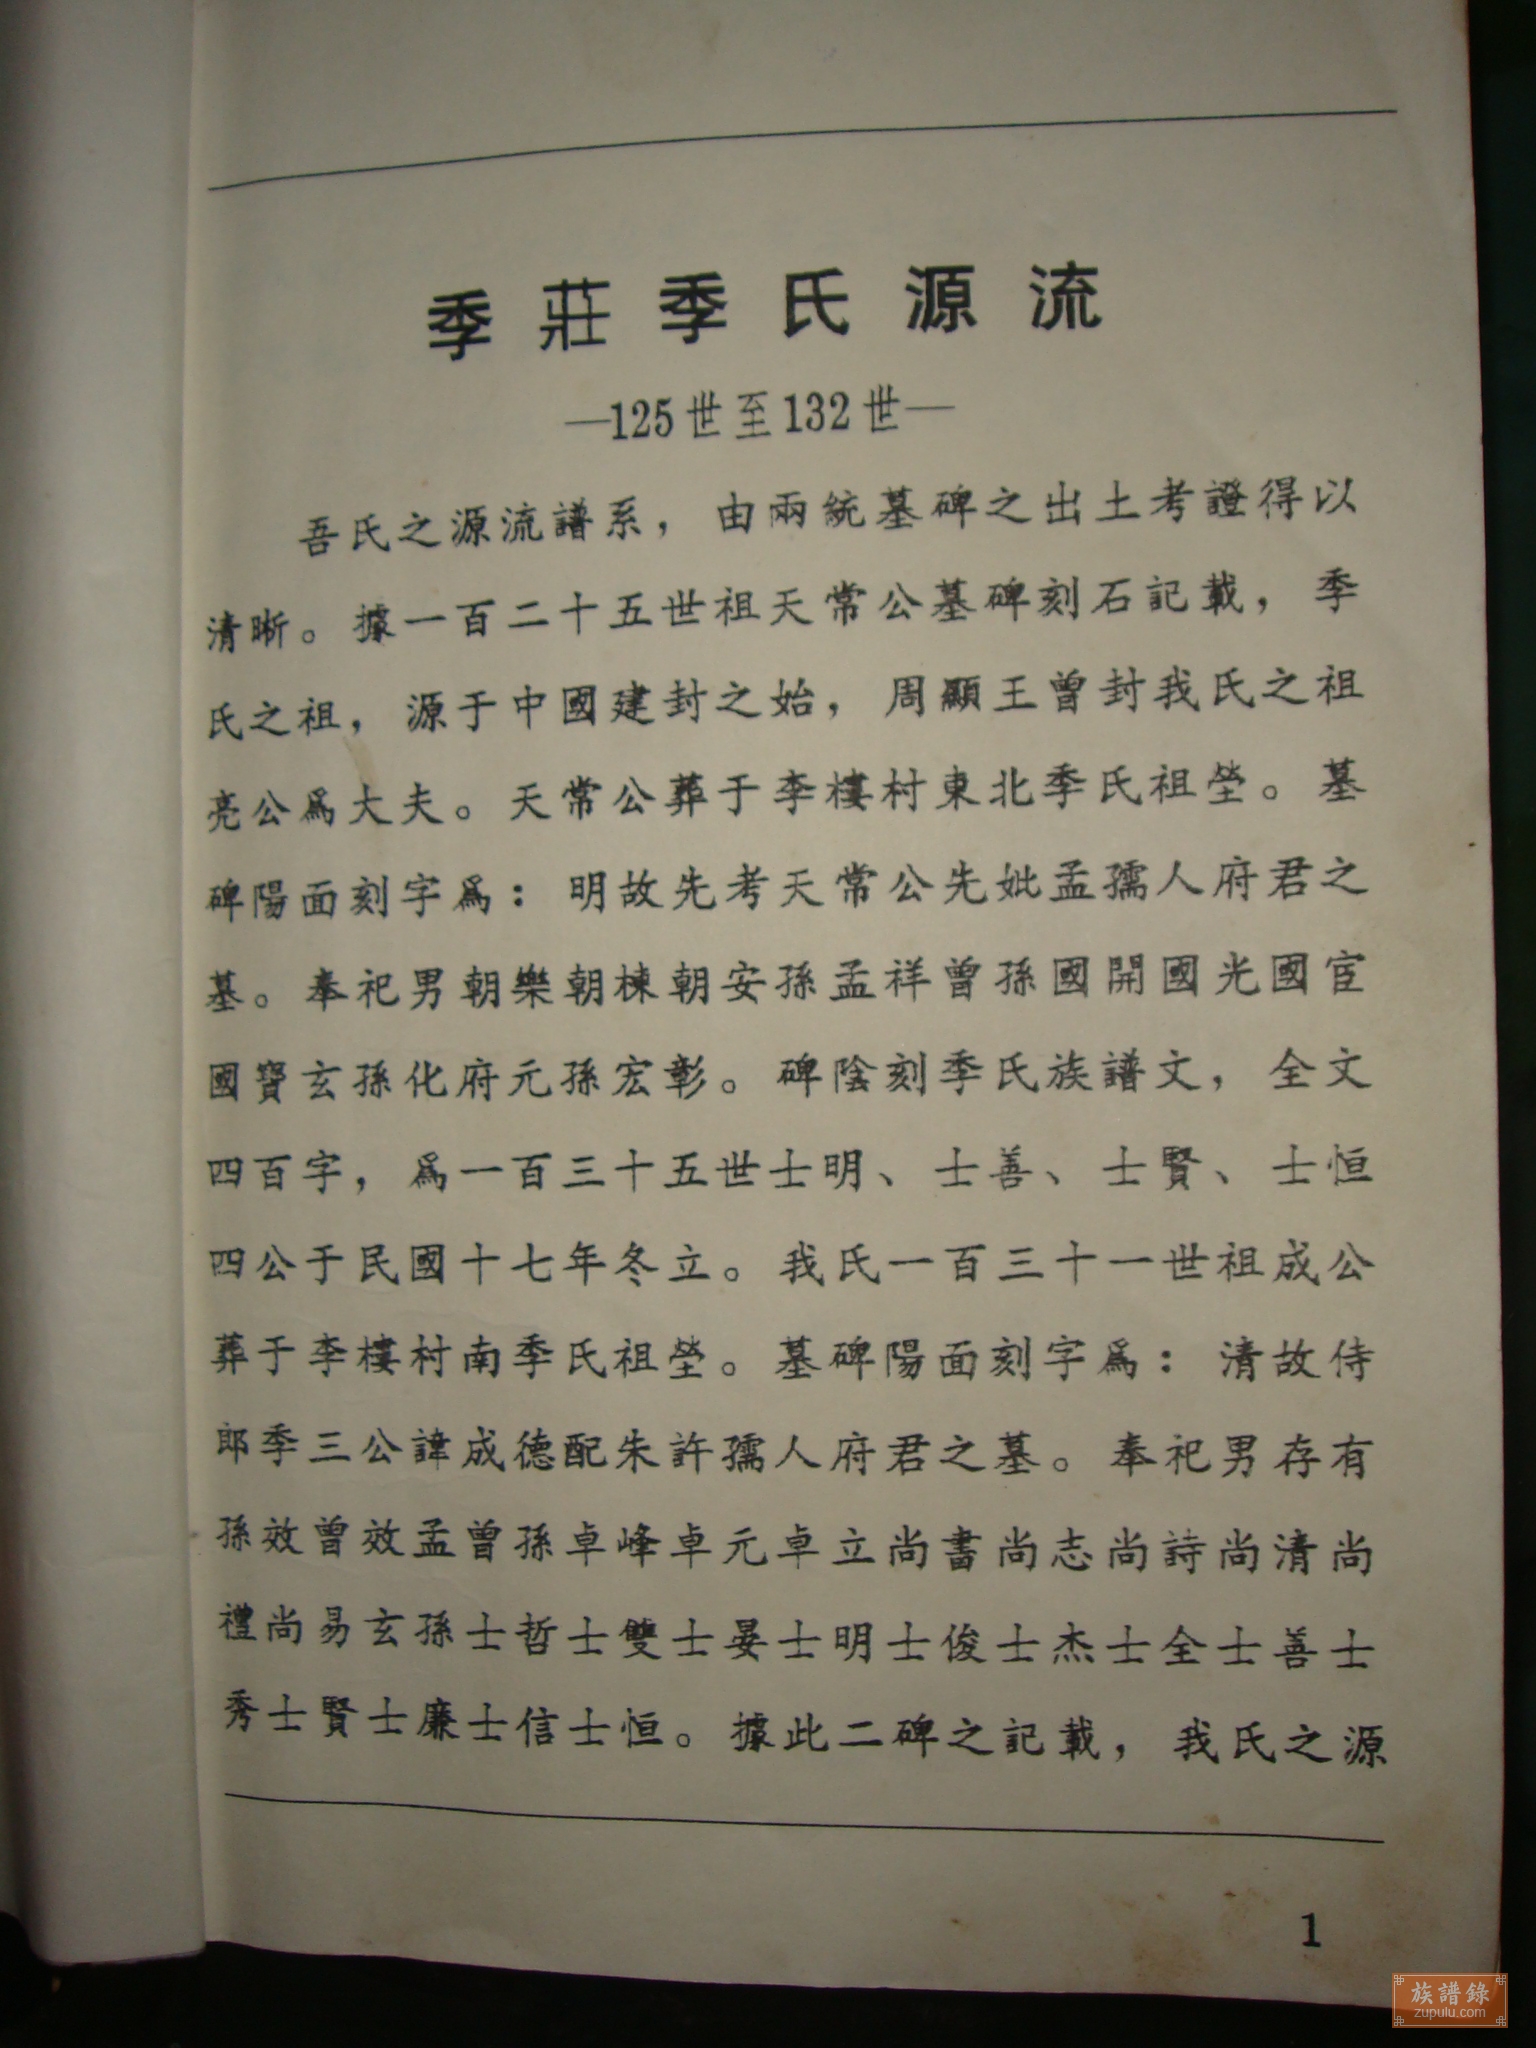 季莊季氏源流
—125世至132世—
吾氏之源流譜系，由兩統墓碑之出土考證得以
清晰。據一百二十五世祖天常公墓碑刻石記載，季
氏之祖，源于中國建封之始，周顯王曾封我氏之祖
亮公爲大夫。天常公葬于李樓村東北季氏祖塋。墓
碑陽面刻字爲：明故先考天常公先妣孟孺人府君之
墓。奉祀男朝樂朝棟朝安孫孟祥曾孫國開國光國宦
國寶玄孫化府元孫宏彰。碑陰刻季氏族譜文，全文
四百字，爲一百三十五世士明、士善、士賢、士恒
四公于民國十七年冬立。我氏一百三十一世祖成公
葬于李樓村南季氏祖塋。墓碑陽面刻字爲：清故侍
郎季三公諱成德配朱許孺人府君之墓。奉祀男存有
孫效曾效孟曾孫卓峰卓元卓立尚書尚志尚詩尚清尚
禮尚易玄孫士哲士雙士晏士明士俊士杰士全士善士
秀士賢士廉士信士恒。據此二碑之記載，我氏之源
1
族譜錄
zupulu.com